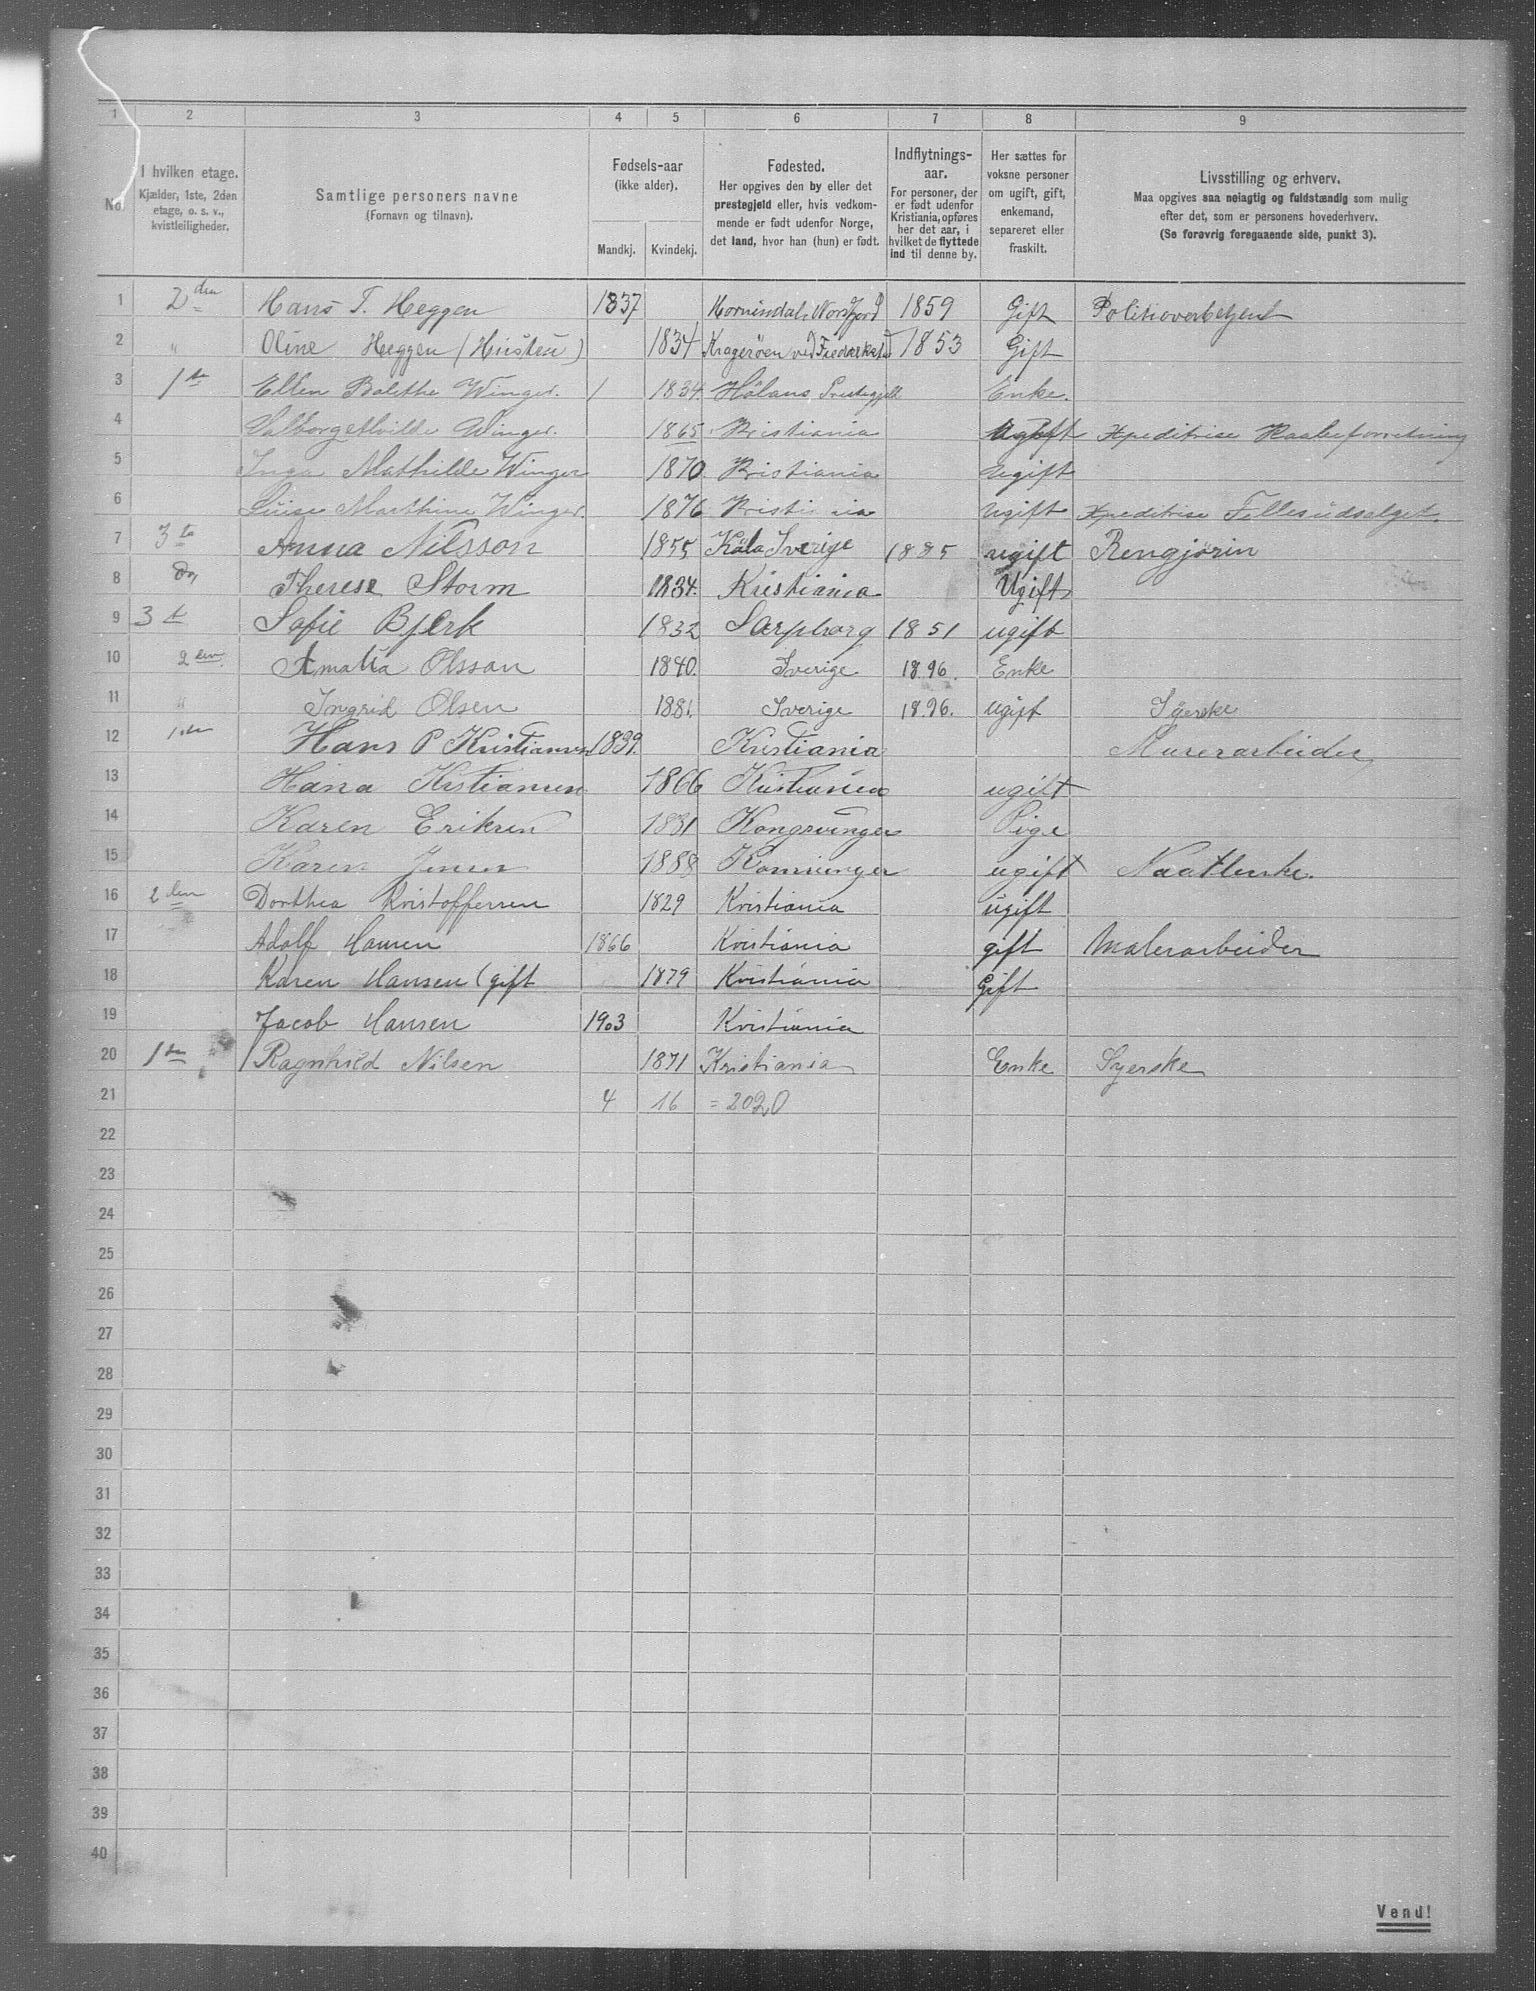 1 2 3 4 5 6 7 8 9
No. I hvilken etage. Kjælder, 1ste, 2den etage, o. s. v., kvistleiligheder. Samtlige personers navne (Fornavn og tilnavn). Fødsels-aar (ikke alder). Mandkj. Kvindekj. Fødested. Her opgives den by eller det prestegjeld eller, hvis vedkommende er født udenfor Norge, det land, hvor han (hun) er født. Indflytnings-aar. For personer, der er født udenfor Kristiania, opføres her det aar, i hvilket de flyttede ind til denne by. Her sættes for voksne personer om ugift, gift, enkemand, separeret eller fraskilt. Livsstilling og erhverv. Maa opgives saa nøiagtig og fuldstændig som mulig efter det, som er personens hovederhverv. (Se forøvrig foregaaende side, punkt 3).
1 2den Hans T. Heggen 1837 Hornindal, Nordfjord 1859 Gift Politioverbetjent
2 " Oline Heggen 1834 Kragerøen ved Fredrikstad 1853 Gift
3 1te Ellen Bolethe Winger. 1 1834. Hölans Prestegjeld Enke.
4 Valborg Winger. 1865 Kristiania Ugift Xpeditrise
5 Inga Mathilde Winger 1870. Kristiania Ugift
6 Luise Marthine Winger. 1876 Kristiania Ugift Xpeditrise Fellesudsalget.
7 3te Anna Nilsson 1855 Köla Sverige 1885 ugift Rengjörin
8 Do, Therese Storm 1834. Kristiania Ugift
9 3t Sofie Bjerk 1832 Sarpborg 1851 ugift
10 2den. Amalia Olsson 1840. Sverige 1896. Enke
11 " Ingrid Olsen 1881. Sverige 1896. ugift Syerske
12 1.ste Hans P Kristiansen 1839. Kristiania Murerarbeider
13 Hana Kristiansen 1866 Kristiania ugift
14 Karen Eriksen 1881 Kongsvinger Pige
15 Karen Jensen 1888 Konsvinger ugift
16 2den Dorthea Kristoffersen 1829 Kristiania ugift
17 Adolf Hansen 1866 Kristiania gift Malerarbeider
18 Karen Hansen (gift 1879 Kristiania Gift
19 Jacob Hansen 1903 Kristiania
20 1te Ragnhild Nilsen 1871 Kristiania Enke Syerske
21 4 16 = 2020
22
23
24
25
26
27
28
29
30
31
32
33
34
35
36
37
38
39
40
Vend!